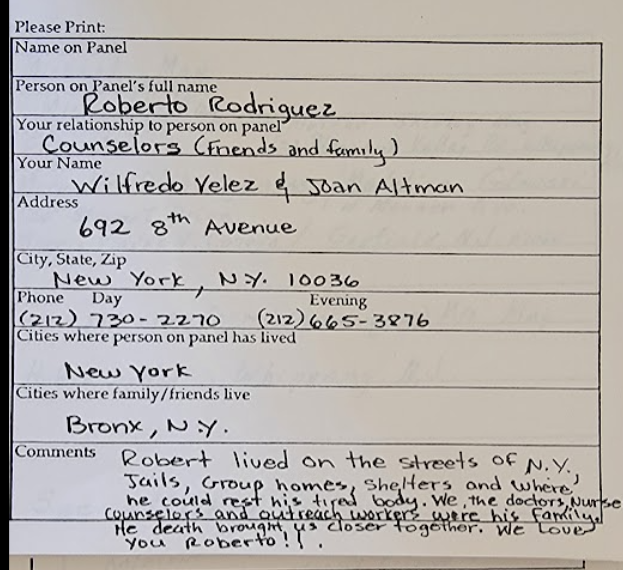 Please Print:
Name on Panel
Person on Panel's full name
Roberto Rodriguez
Your relationship to person on panel
Counselors (Friends and family)
Your Name
Wilfredo Velez & Joan Altman
Address
692 8th Avenue
City, State, Zip
New York, N.Y. 10036
Phone Day Evening
(212) 730-2270 (212) 665-3876
Cities where person on panel has lived
New York
Cities where family/friends live
Bronx, N.Y.
Comments Robert lived on the streets of N.Y.
Jails, Group homes, Shelters and where
he could rest his tired body. We, the doctors, Nurse
counselors and outreach workers were his family.
He death brought us closer together. We Love
You Roberto!!.